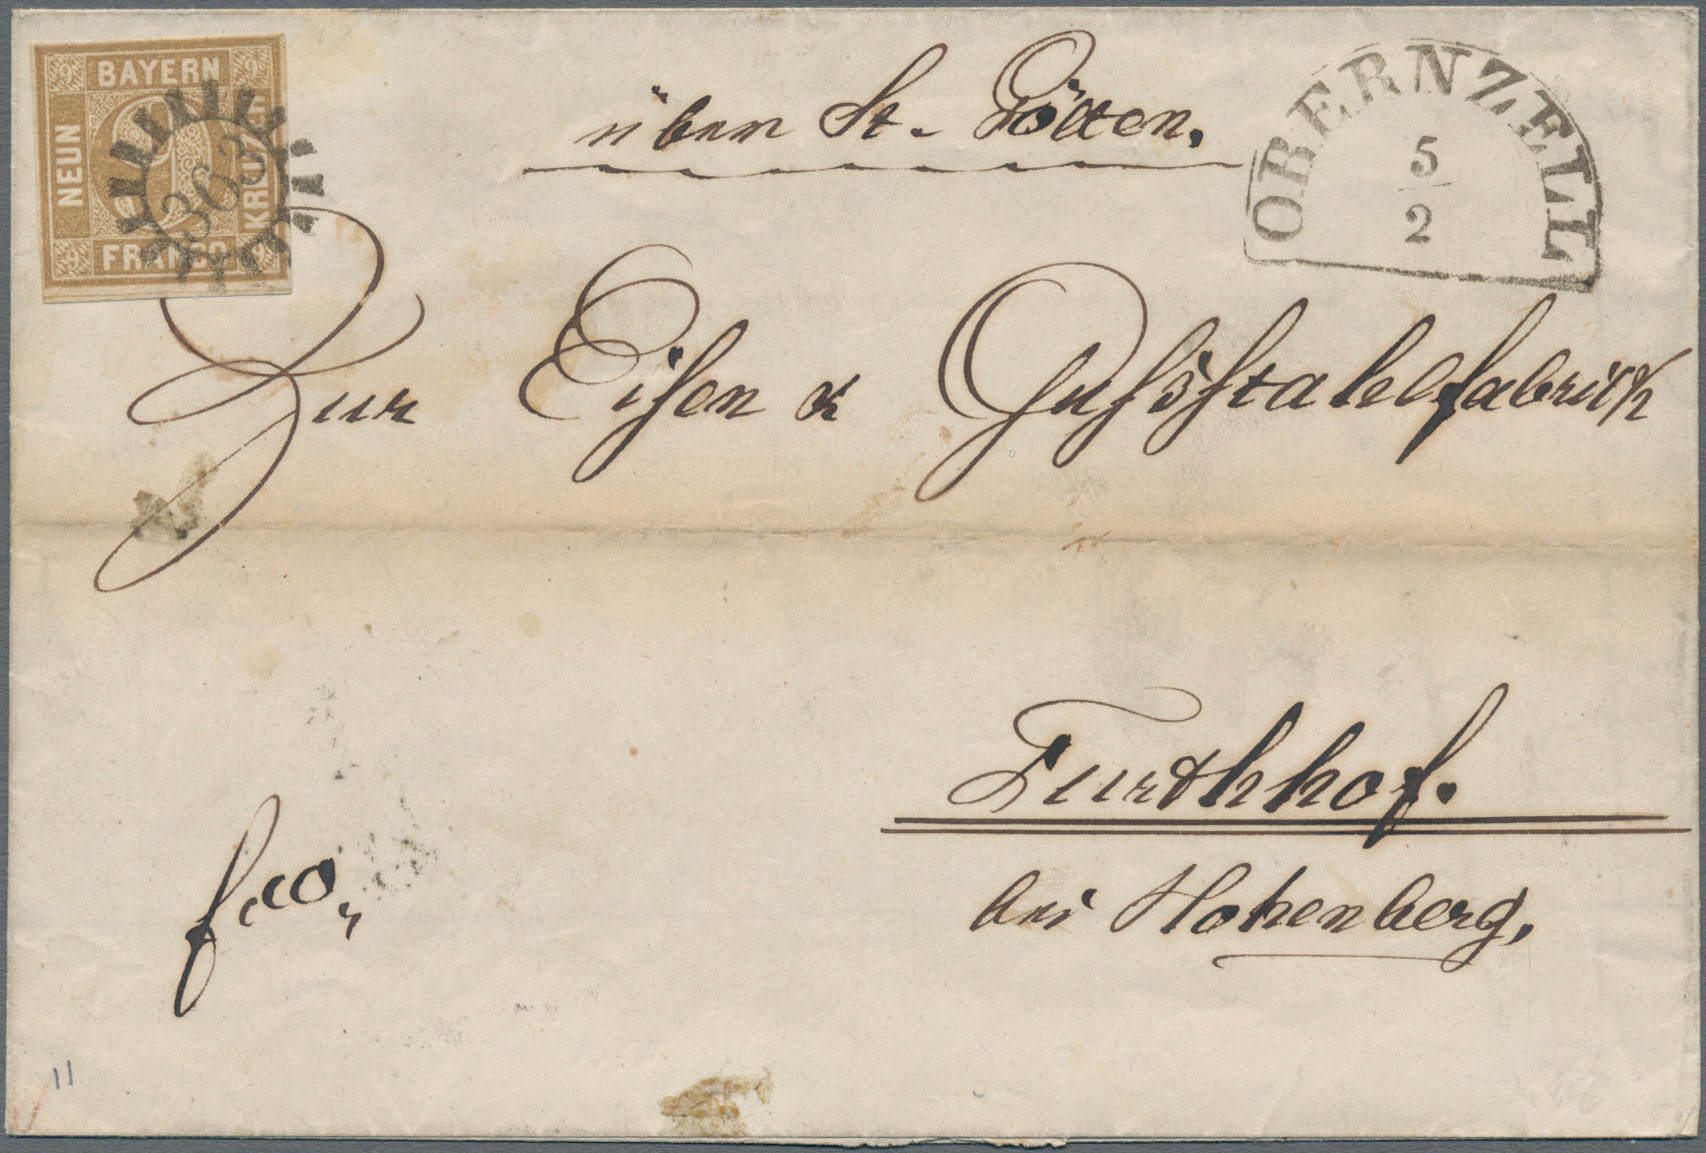 9 9
BAYERN
NEUN
KREUZER
FRANCO
9 9
363
über St. Pölten.
OBERNZELL
5
2
Zur Eisen & Gußstahlfabrik
Furthhof.
bei Hohenberg.
fco,
11